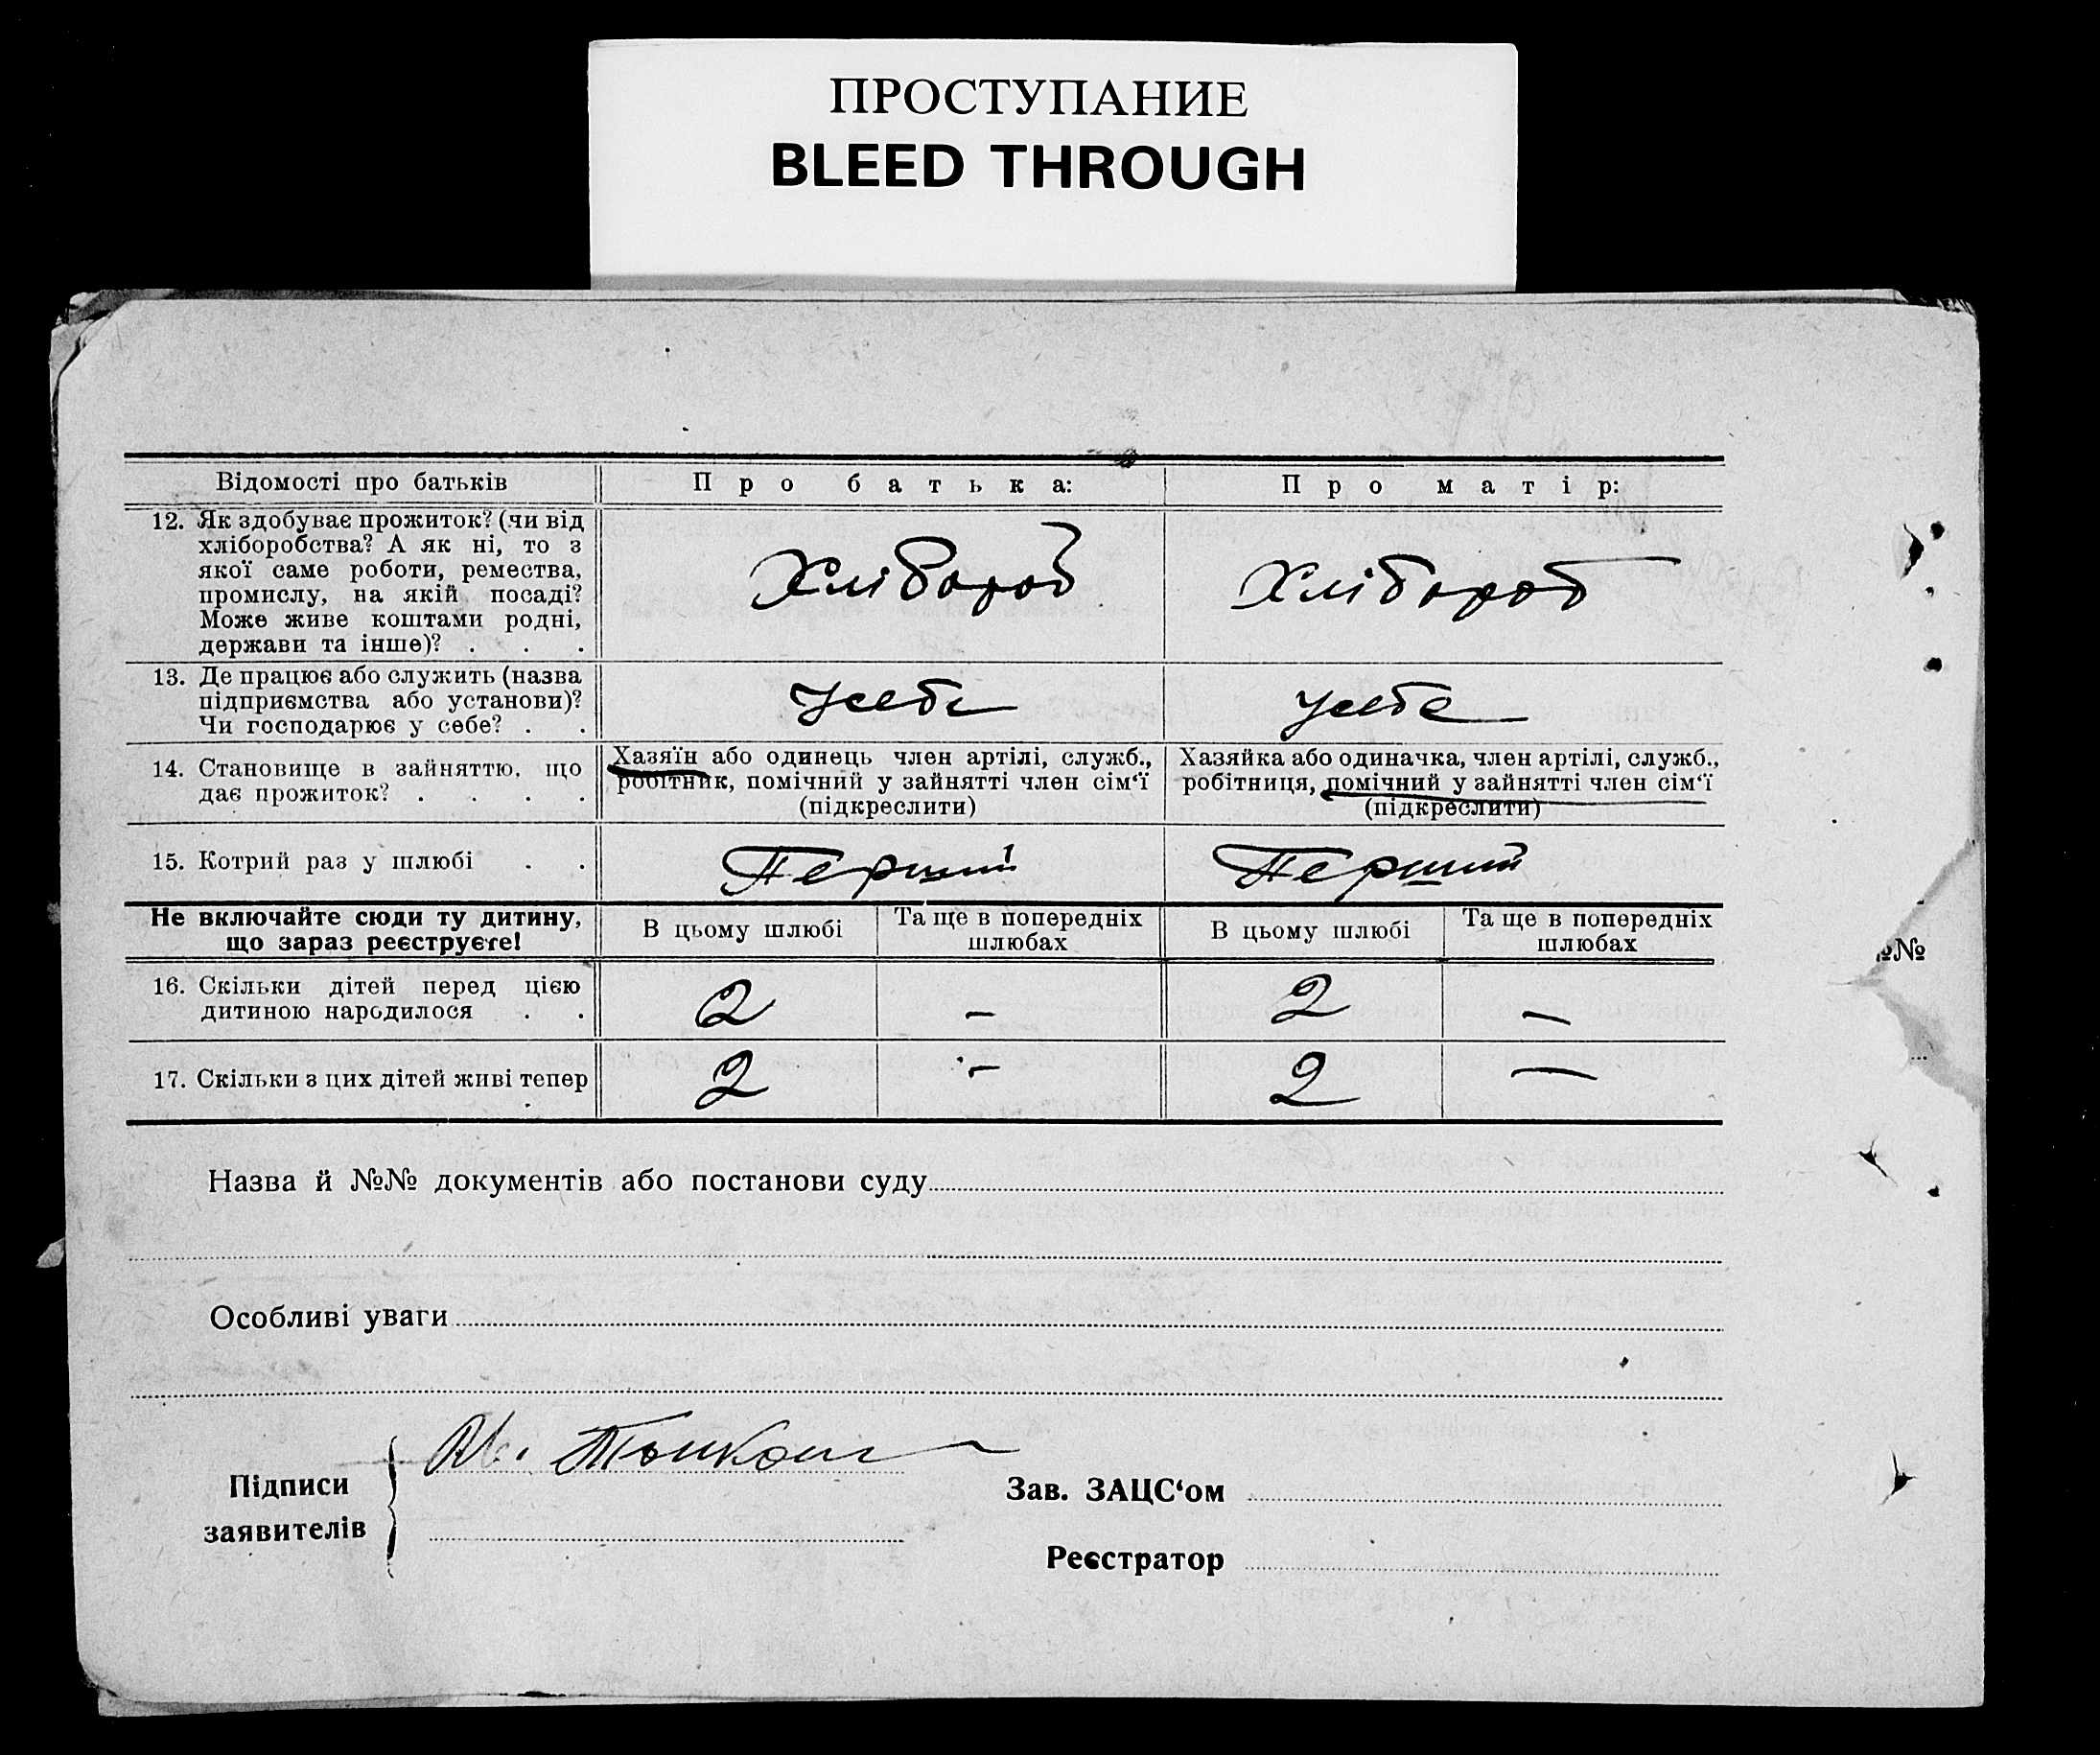 ПРОСТУПАНИЕ
BLEED THROUGH
Відомості про батьків
Про батька:
Про матір:
12. Як здобуває прожиток? (чи від
хліборобства? А як ні, то з
якої саме роботи, ремества,
промислу, на якій посаді?
Може живе коштами родні,
держави та інше)? . . .
Хлібороб
Хлібороб
13. Де працює або служить (назва
підприємства або установи)?
Чи господарює у себе? . .
у себе
у себе
14. Становище в зайняттю, що
дає прожиток? . . . .
Хазяїн або одинець член артілі, служб.,
робітник, помічний у зайнятті член сім‘ї
(підкреслити)
Хазяйка або одиначка, член артілі, служб.,
робітниця, помічний у зайнятті член сім‘ї
(підкреслити)
15. Котрий раз у шлюбі . .
Перший
Перший
Не включайте сюди ту дитину,
що зараз реєструєте!
В цьому шлюбі
Та ще в попередніх
шлюбах
В цьому шлюбі
Та ще в попередніх
шлюбах
16. Скільки дітей перед цією
дитиною народилося . .
2
—
2
—
17. Скільки з цих дітей живі тепер
2
—
2
—
№№
Назва й №№ документів або постанови суду
Особливі уваги
Підписи
заявителів
Зав. ЗАЦС‘ом
Реєстратор